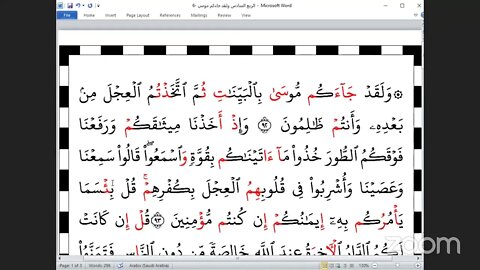 الربع السادس ولقد جاءكم موسى -6 - Microsoft Word
File Home Insert Page Layout References Mailings Review View
۞ وَلَقَدْ جَآءَكُم مُّوسَىٰ بِالْبَيِّنَـٰتِ ثُمَّ اتَّخَذْتُمُ الْعِجْلَ مِنۢ
بَعْدِهِۦ وَأَنتُمْ ظَـٰلِمُونَ ﴿٩٢﴾ وَإِذْ أَخَذْنَا مِيثَـٰقَكُمْ وَرَفَعْنَا
فَوْقَكُمُ الطُّورَ خُذُوا۟ مَآ ءَاتَيْنَـٰكُم بِقُوَّةٍ وَاسْمَعُوا۟ ۖ قَالُوا۟ سَمِعْنَا
وَعَصَيْنَا وَأُشْرِبُوا۟ فِى قُلُوبِهِمُ الْعِجْلَ بِكُفْرِهِمْ ۚ قُلْ بِئْسَمَا
يَأْمُرُكُم بِهِۦٓ إِيمَـٰنُكُمْ إِن كُنتُم مُّؤْمِنِينَ ﴿٩٣﴾ قُلْ إِن كَانَتْ
لَكُمُ الدَّارُ الْـَٔاخِرَةُ عِندَ اللَّهِ خَالِصَةً مِّن دُونِ النَّاسِ فَتَمَنَّوُا۟
zoom
Page: 1 of 3 Words: 298 Arabic (Saudi Arabia) 100%